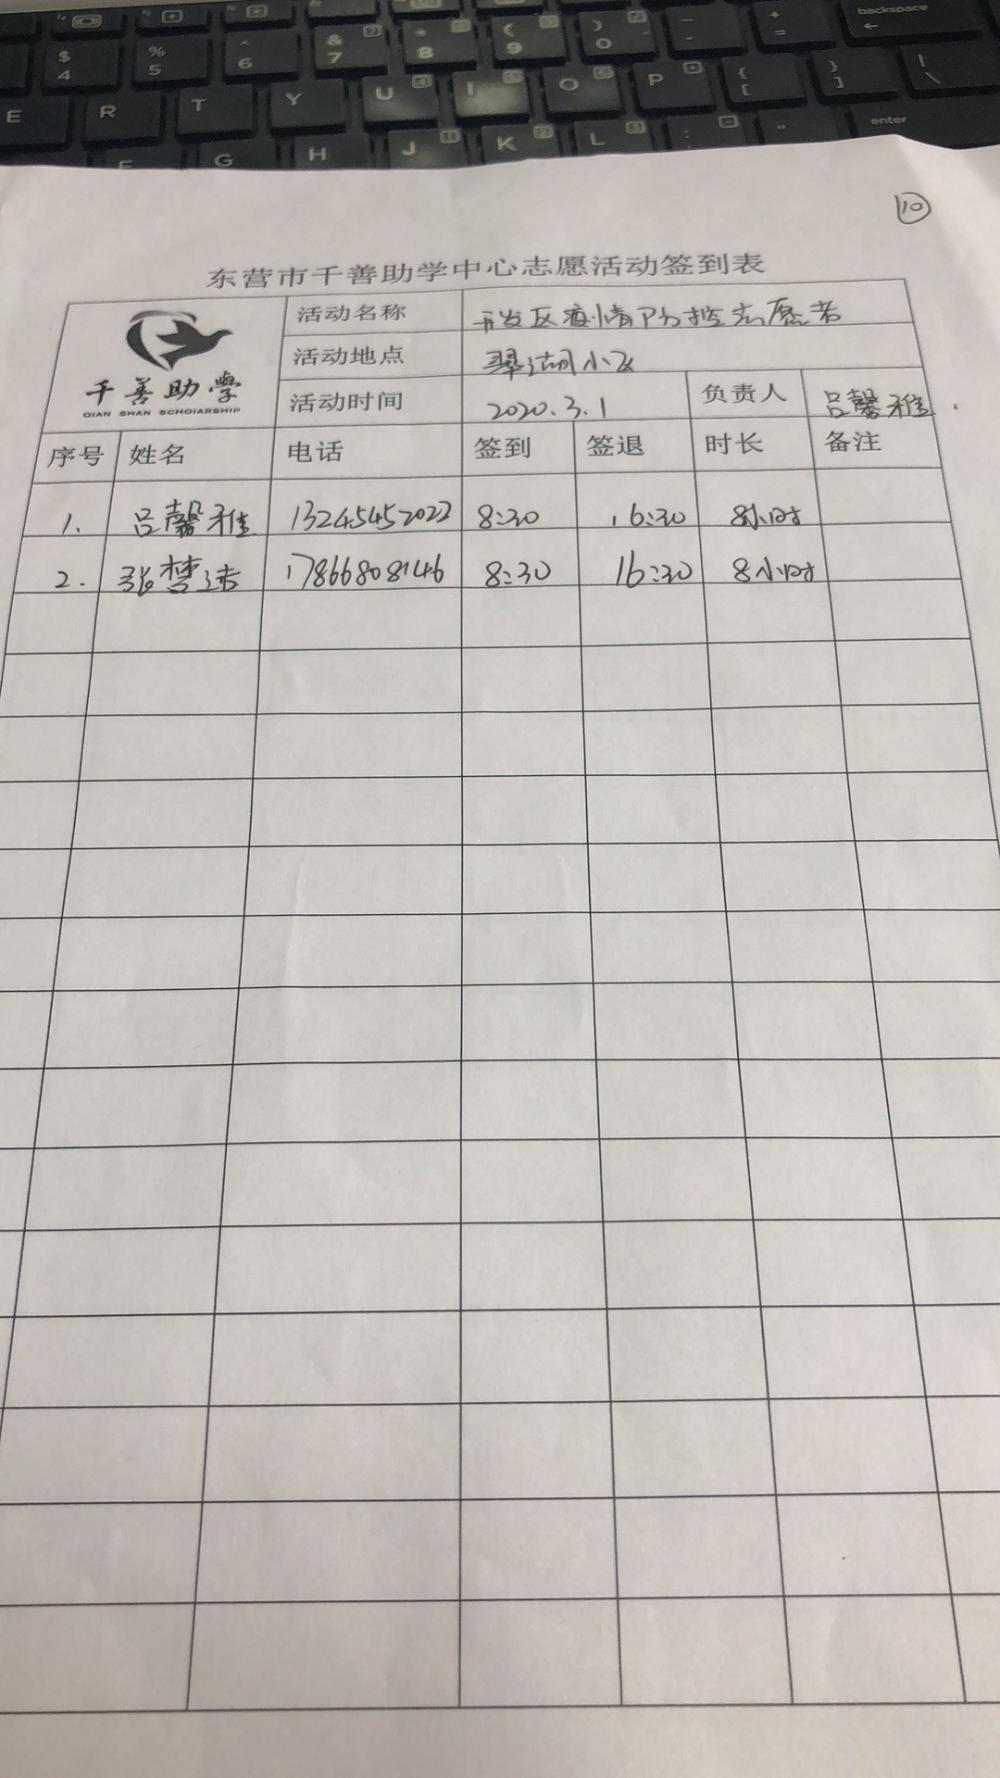 backspace
$ 4 % 5 ^ 6 & 7 * 8 ( 9 ) 0 - + =
E R T Y U I O P { [ } ] | \
F G H J K L : " enter
10
东营市千善助学中心志愿活动签到表
千善助学
QIAN SHAN SCHOIARSHIP
活动名称 开发区疫情防控志愿者
活动地点 翠湖小区
活动时间 2020.3.1 负责人 吕馨雅
序号 姓名 电话 签到 签退 时长 备注
1. 吕馨雅 13245452022 8:30 16:30 8小时
2. 张梦 17866808146 8:30 16:30 8小时